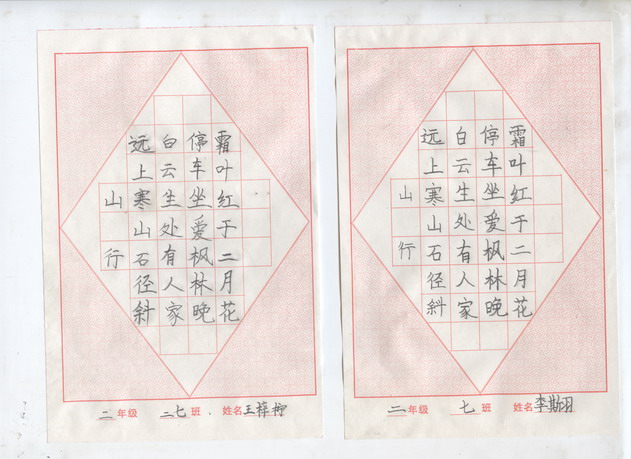 山行
远上寒山石径斜
白云生处有人家
停车坐爱枫林晚
霜叶红于二月花
二年级 二七班. 姓名王梓
山行
远上寒山石径斜
白云生处有人家
停车坐爱枫林晚
霜叶红于二月花
二年级 七班 姓名李斯羽